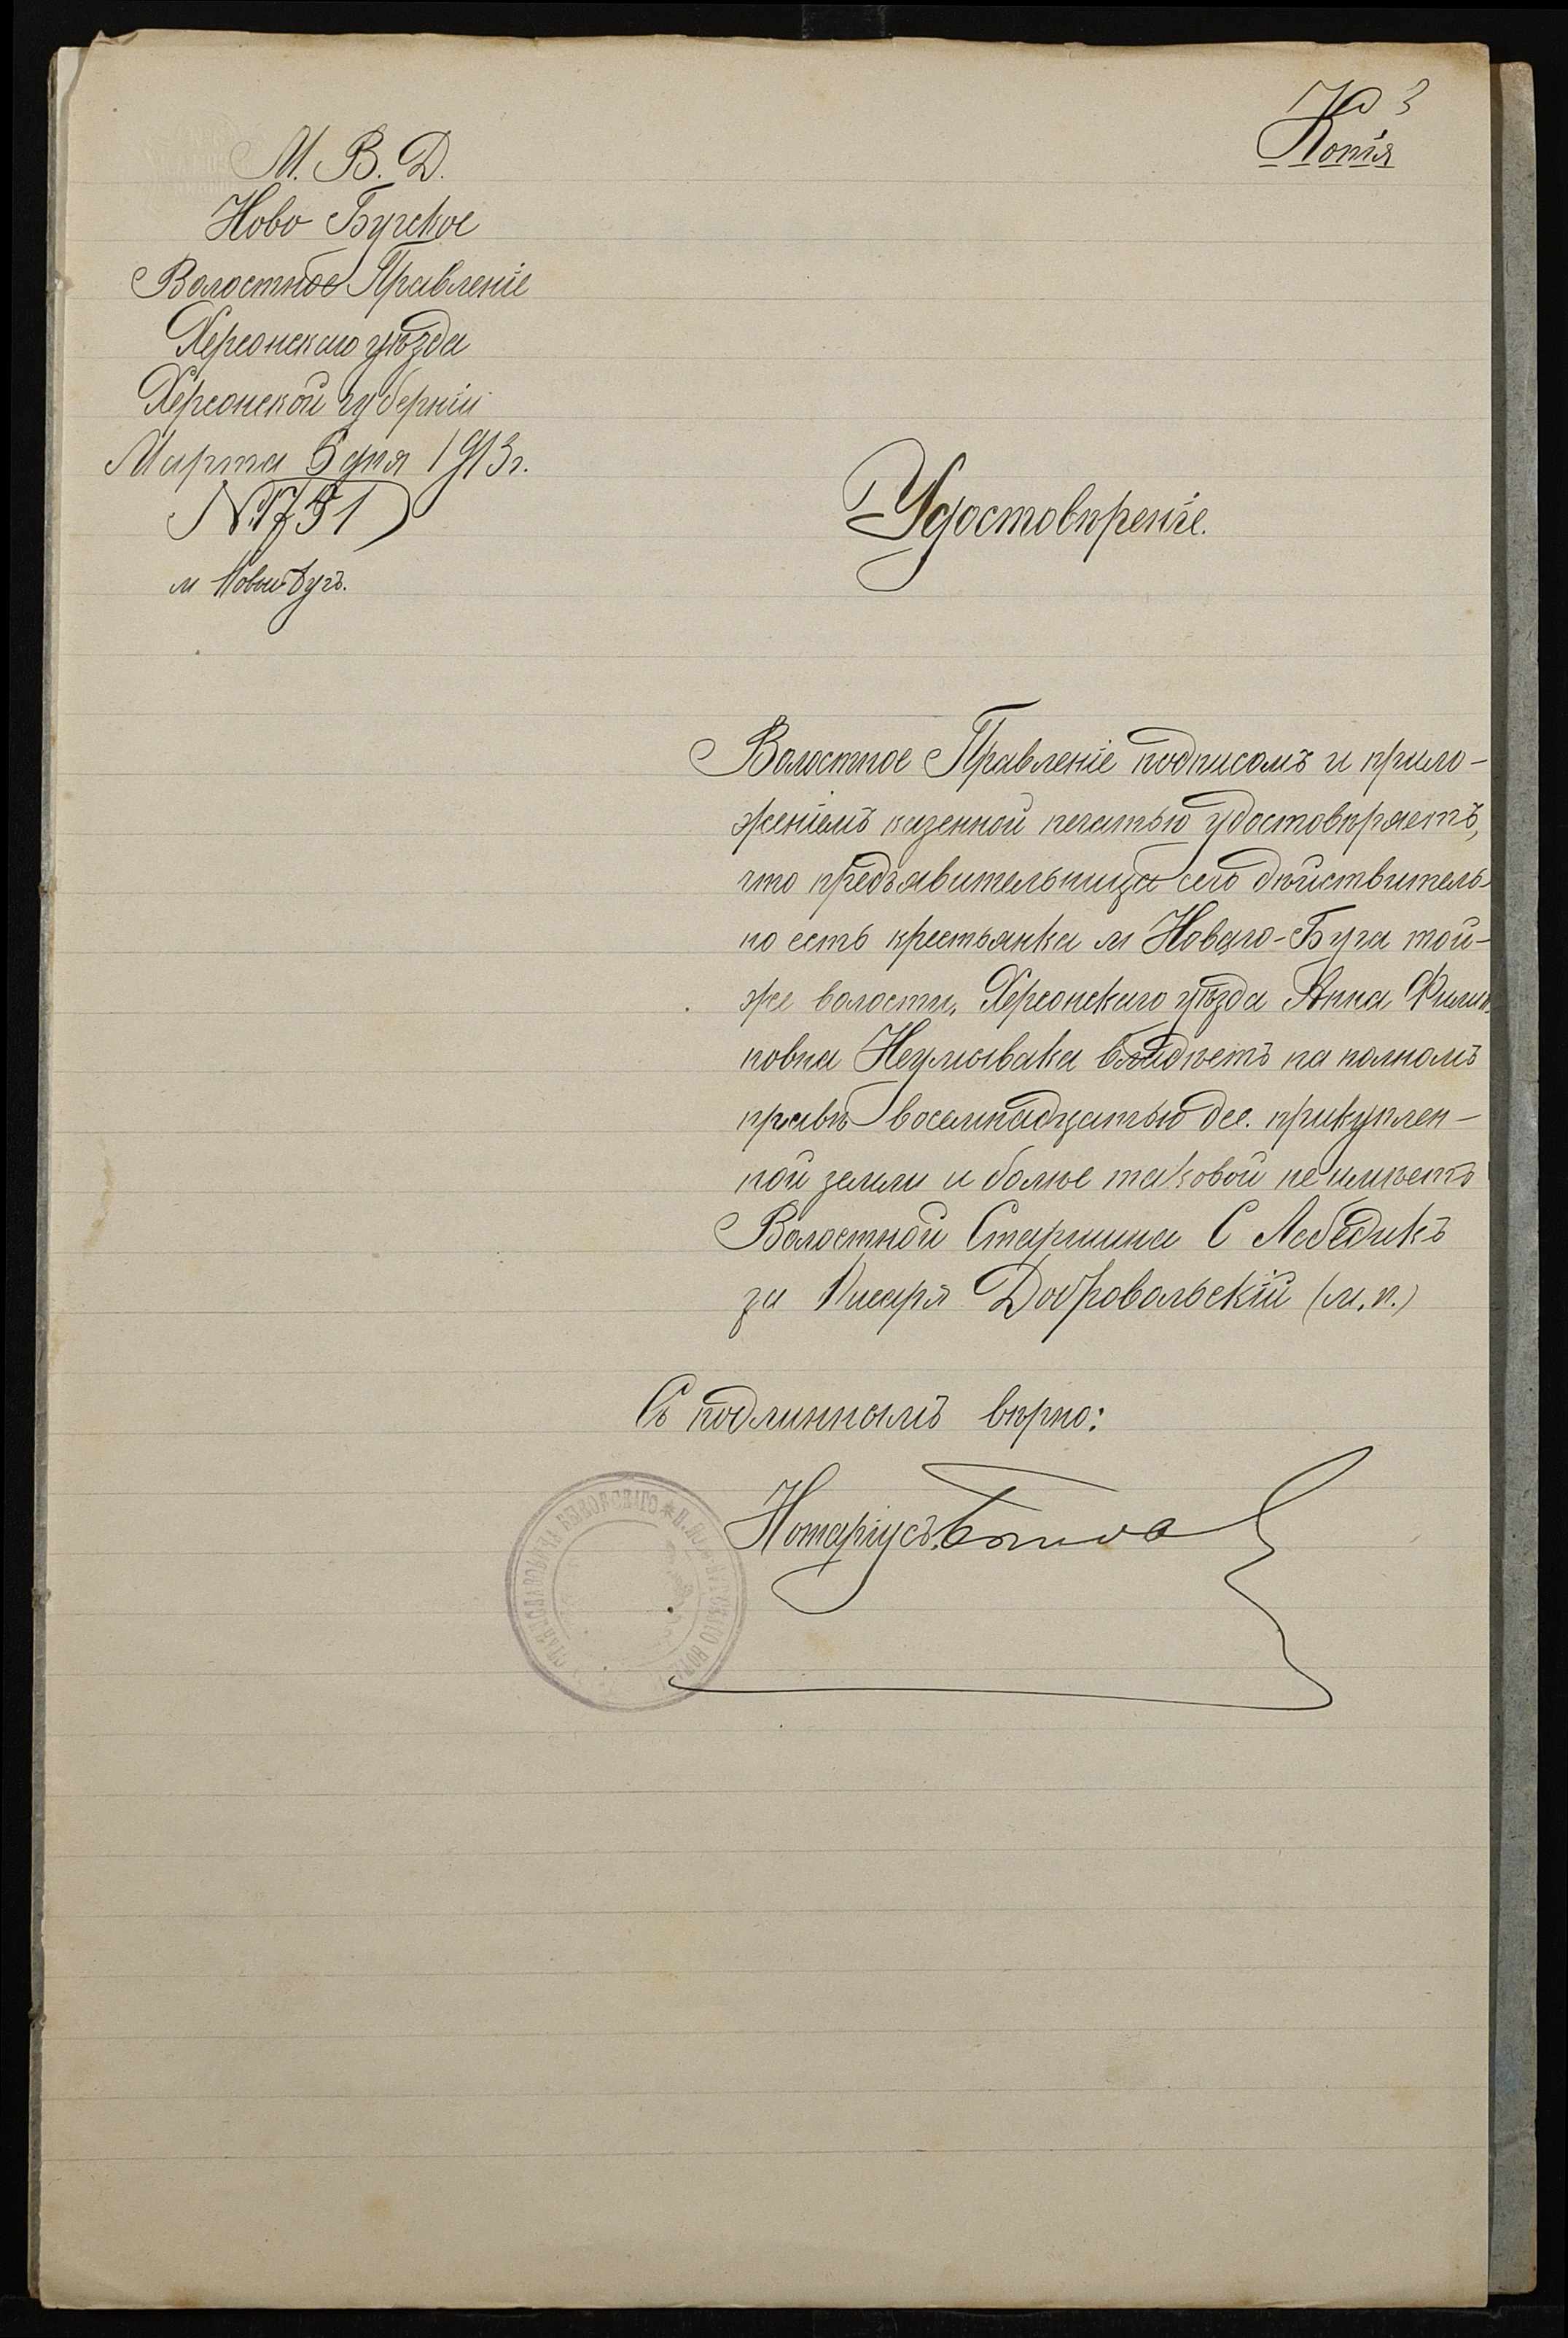 3
Копія
М. В. Д.
Ново Бугское
Волостное Правленіе
Херсонскаго уѣзда
Херсонской губерніи
Марта 5 дня 1913 г.
м Новый Бугъ.
Удостовѣреніе.
Волостное Правленіе подписомъ и прило-
женіемъ казенной печатью удостовѣряетъ,
что предъявительница сего дѣйствитель-
но есть крестьянка м Новаго-Буга той-
же волости, Херсонскаго уѣзда Анна Филип-
повна Неумывака владѣетъ на полномъ
правѣ восемнадцатью дес. прикуплен-
ной земли и болѣе таковой не имѣетъ
Волостной Старшина С Лебедикъ
за Писаря Добровольскій (м.п.)
Съ подлиннымъ вѣрно:
Нотаріусъ